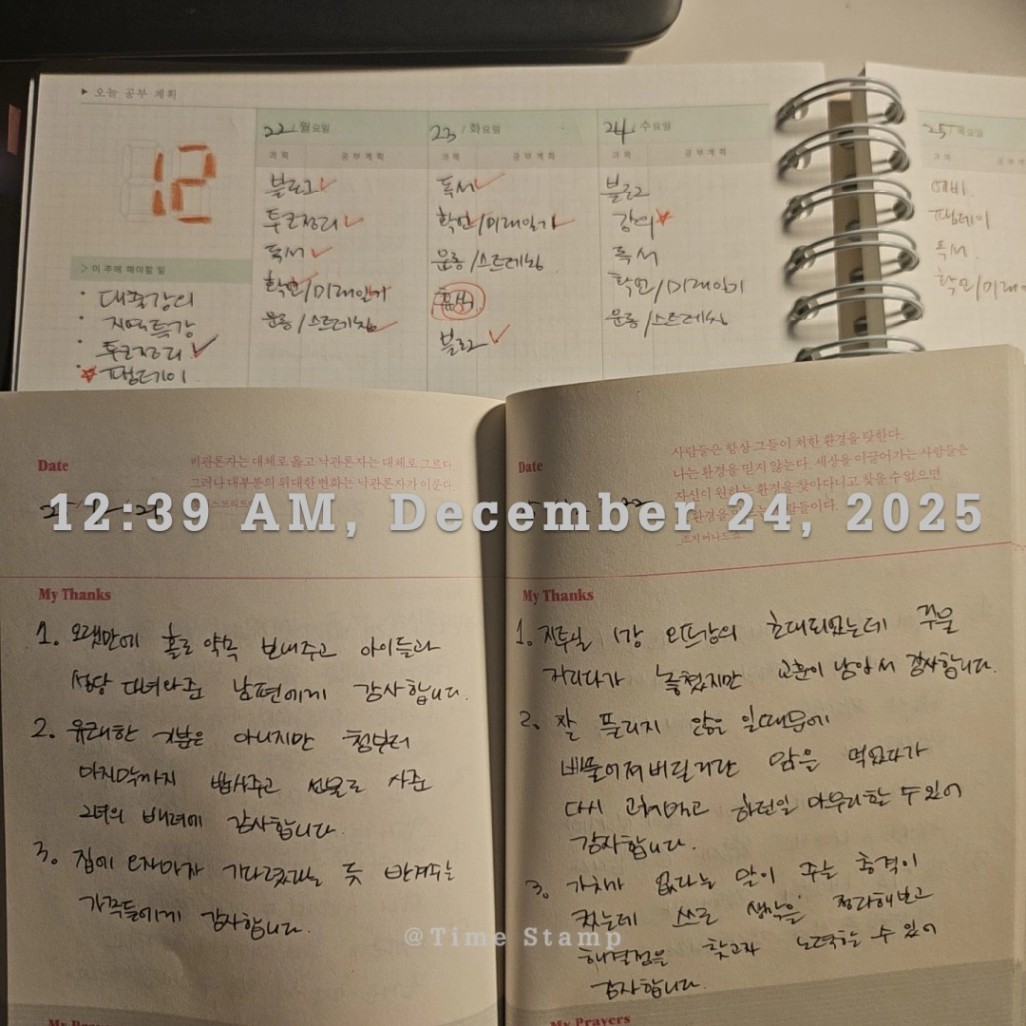 ▶ 오늘 공부 계획
12
22 / 월요일
과목 공부계획
블로그
투코정리
독서
확언/미래일기
운동/스트레칭
23 / 화요일
과목 공부계획
독서
확언/미래일기
운동/스트레칭
휴식
블로그
24 / 수요일
과목 공부계획
블로그
강의
독서
확언/미래일기
운동/스트레칭
25 / 목요일
과목
독서
확언/미래
> 이 주에 해야할 일
· 대축강의
· 지역특강
· 투코정리
Date
비관론자는 대체로 옳고 낙관론자는 대체로 그르다.
그러나 대부분의 위대한 변화는 낙관론자가 이룬다.
Date
사람들은 항상 그들이 처한 환경을 탓한다.
나는 환경을 믿지 않는다. 세상을 이끌어가는 사람들은
자신이 원하는 환경을 찾아다니고 찾을 수 없으면
12:39 AM, December 24, 2025
My Thanks
1. 오랜만에 홀로 약속 보내주고 아이들과
성당 다녀와준 남편에게 감사합니다.
2. 유쾌한 기분은 아니지만 첨부터
마지막까지 밥사주고 선물로 사준
그녀의 배려에 감사합니다.
3. 집에 오자마자 기다렸다는 듯 반겨주는
가족들에게 감사합니다.
My Thanks
1. 지투실 1강 오프강의 초대되었는데 주울
거리다가 놓쳤지만 교훈이 남아서 감사합니다.
2. 잘 풀리지 않은 일때문에
삐뚤어져버릴거란 맘을 먹었다가
다시 고쳐먹고 하던일 마무리할 수 있어
감사합니다.
3. 가치가 없다는 말이 주는 충격이
컸는데 쓰고 생각을 정리해보고
해결점을 찾고자 노력할 수 있어
감사합니다.
@Time Stamp
My Prayers